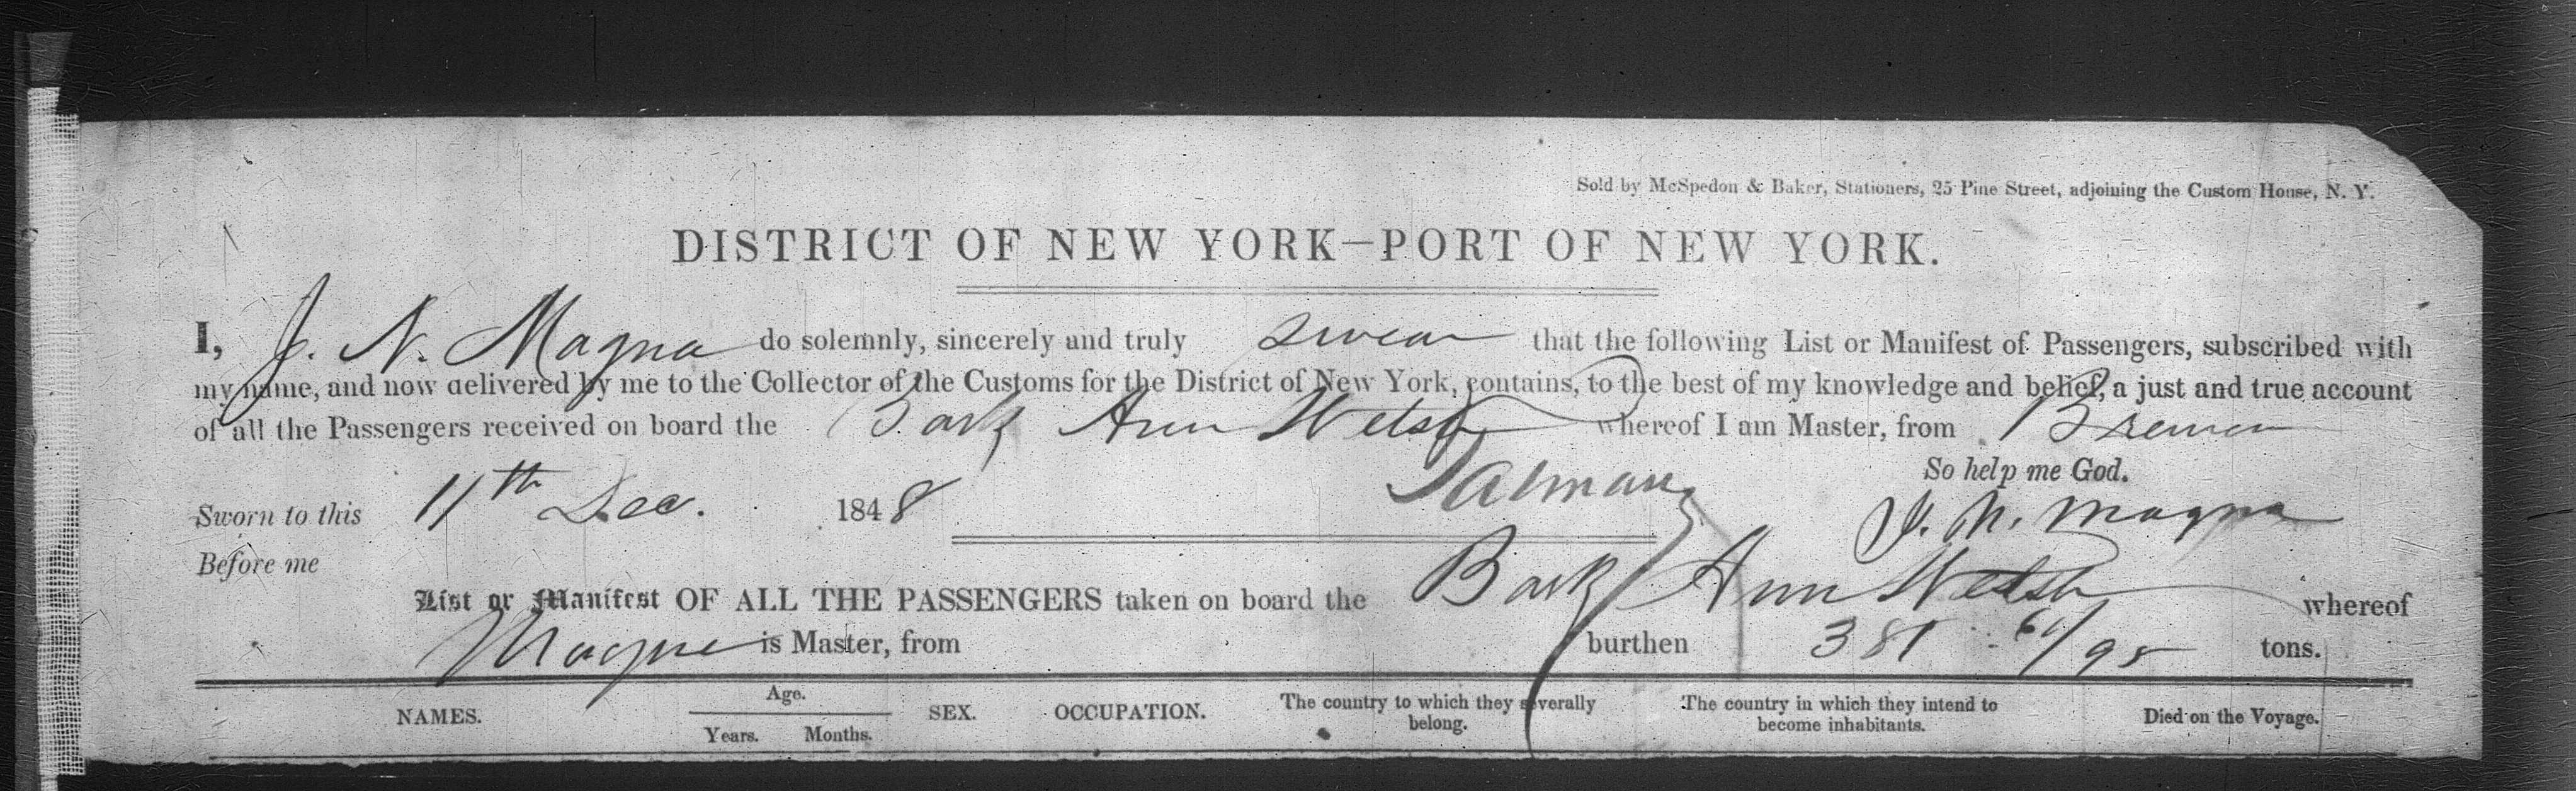 Sold by McSpedon & Baker, Stationers, 25 Pine Street, adjoining the Custom House, N. Y.
DISTRICT OF NEW YORK—PORT OF NEW YORK.
I, J. N. Magna do solemnly, sincerely and truly swear that the following List or Manifest of Passengers, subscribed with
my name, and now delivered by me to the Collector of the Customs for the District of New York, contains, to the best of my knowledge and belief, a just and true account
of all the Passengers received on board the Bark Ann Welsh whereof I am Master, from Bremen
So help me God.
Sworn to this 11th Dec. 1848
J. N. Magna
Before me
List or Manifest OF ALL THE PASSENGERS taken on board the Bark Ann Welsh whereof
Magna is Master, from burthen 381 /95 tons.
NAMES. Age. SEX. OCCUPATION. The country to which they severally belong. The country in which they intend to become inhabitants. Died on the Voyage.
Years. Months.